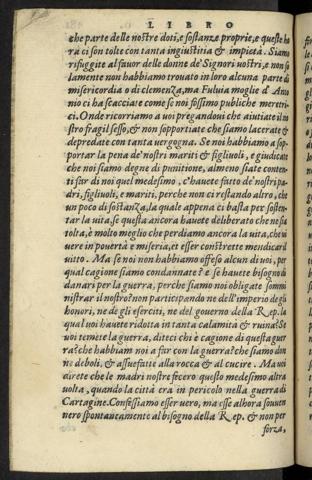 LIBRO
che parte delle nostre doti, e sostanze proprie, e queste ho
ra ci son tolte con tanta ingiustitia & impietà. Siamo
rifuggite al fauor delle donne de' Signori nostri, e non so
lamente non habbiamo trouato in loro alcuna parte di
misericordia o di clemenza, ma Fuluia moglie d'Anto
nio ci ha scacciate come se noi fossimo publiche meretri-
ci. Onde ricorriamo a voi pregandoui che aiutiate il no
stro fragil sesso, & non sopportiate che siamo lacerate &
depredate con tanta vergogna. Se noi habbiamo a sop-
portar la pena de' nostri mariti & figliuoli, e giudicate
che noi siamo degne di punitione, almeno siate conten-
ti far di noi quel medesimo, c'hauete fatto de' nostri pa-
dri, figliuoli, e mariti, perche non ci restando altro, che
un poco di sostanza, la quale appena ci basta per sosten-
tar la vita, se questa ancora hauete deliberato che ne sia
tolta, è molto meglio che perdiamo ancora la vita, che vi
uere in pouertà e miseria, et esser constrette mendicar il
uitto. Ma se noi non habbiamo offeso alcun di uoi, per
qual cagione siamo condannate? e se hauete bisogno di
danari per la guerra, perche siamo noi obligate sommi
nistrar il nostro? non participando ne dell'imperio de gli
honori, ne de gli eserciti, ne del gouerno della Rep. la
qual uoi hauete ridotta in tanta calamità & ruina? Se
uoi temete la guerra, diteci chi è cagione di questa guer
ra? che habbiam noi a far con la guerra? che siamo don
ne deboli, & assuefatte alla rocca & al cucire. Ma uoi
direte che le madri nostre fecero questo medesimo altra
uolta, quando la città era in pericolo nella guerra di
Cartagine. Confessiamo esser uero, ma esse alhora souuen
nero spontaneamente al bisogno della Rep. & non per
forza,